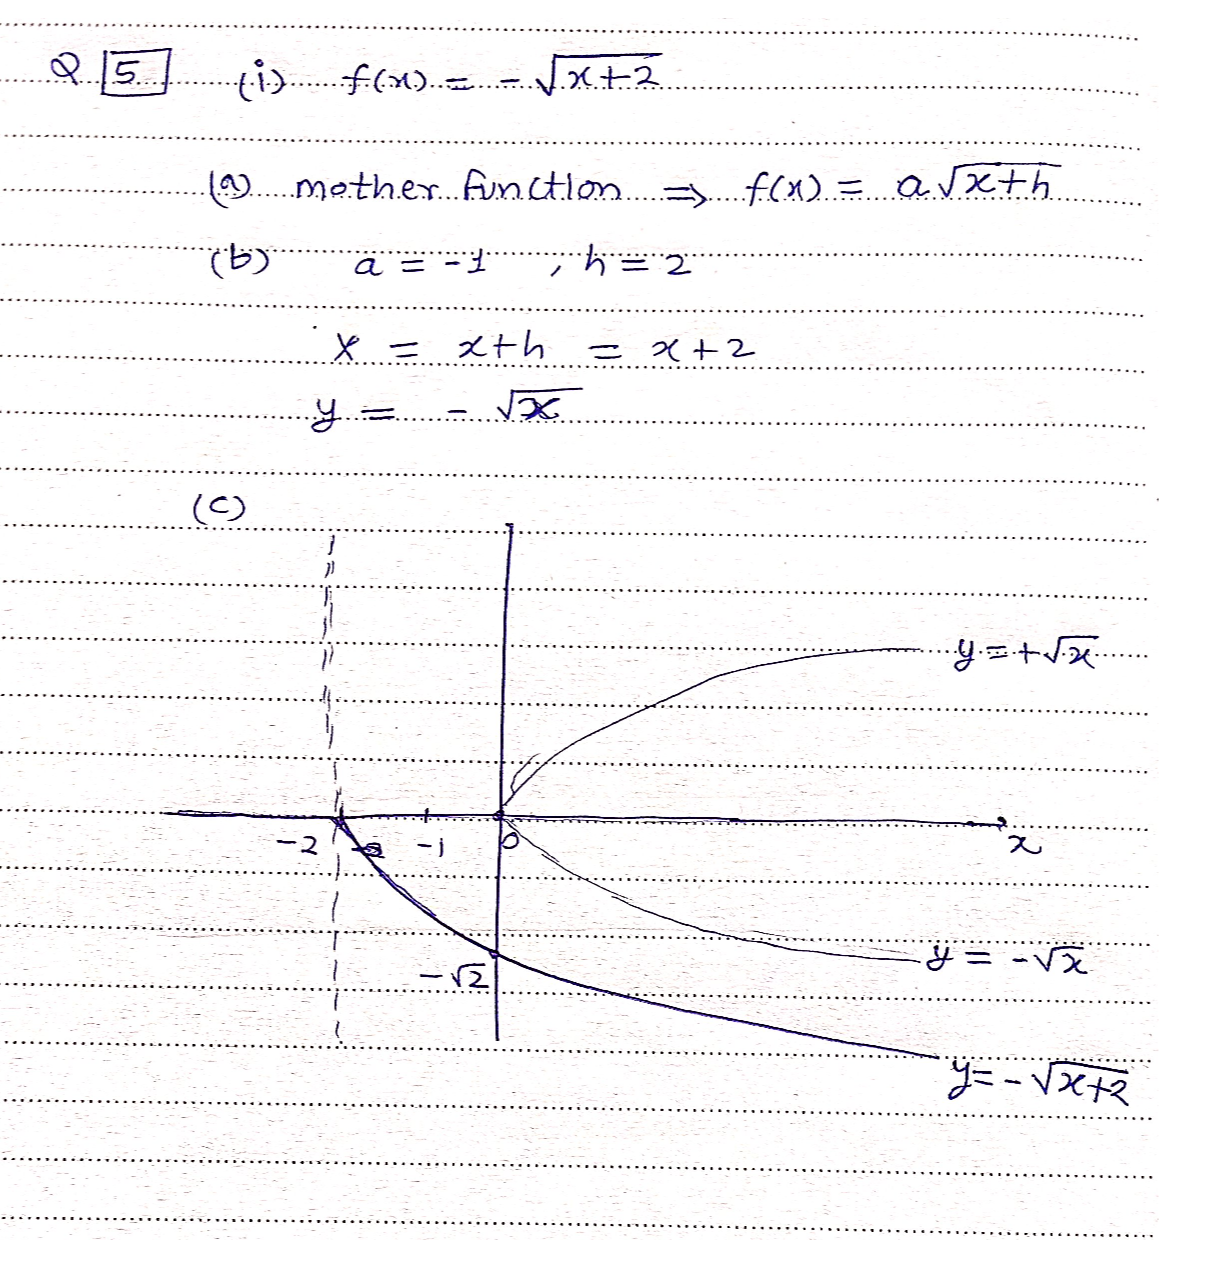 Q 5 (i) f(x) = -√x+2
(a) mother function ⇒ f(x) = a√x+h
(b) a = -1 , h = 2
X = x+h = x+2
y = - √x
(C)
y = +√x
-2 -1 0 x
y = -√x
-√2
y= -√x+2